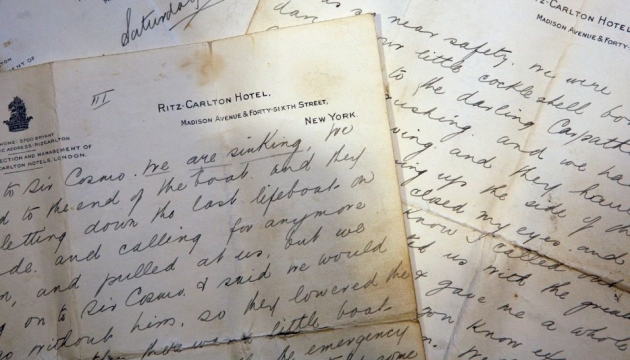 Saturday
MENT OF
III
RITZ-CARLTON HOTEL.
MADISON AVENUE & FORTY-SIXTH STREET,
NEW YORK.
PHONE: 5700 BRYANT
ADDRESS: RIZCARLTON
ECTION AND MANAGEMENT OF
CARLTON HOTELS, LONDON.
to Sir Cosmo. We are sinking, We
d to the end of the boat. and they
letting down the last lifeboat on
de. and calling for anymore
n, and pulled at us, but we
g on to Sir Cosmo. & said we would
o without him, so they lowered the
little boat
the emergency
some
RITZ-CARLTON HOTEL
MADISON AVENUE & FORTY-
near safety. We were
dar
little cockleshell bo
to the darling Carpath
ushing. and we ha
ing. and they hau
ing up the side of th
closed my eyes. and
know I called
us with the grea
& gave me a whole
know